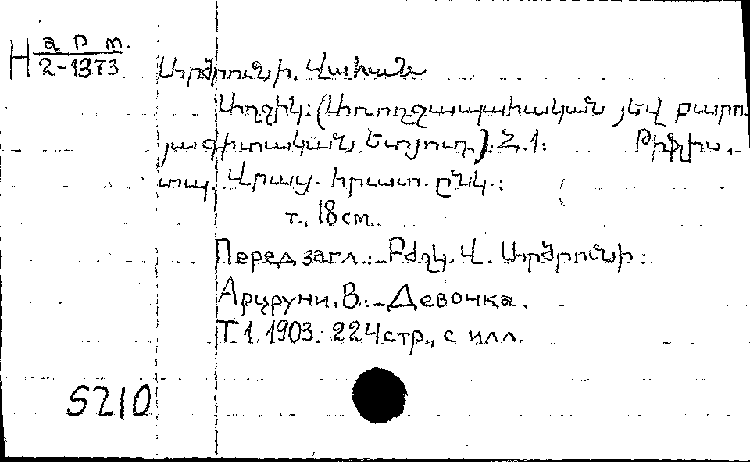 Н а р т.
2-1373
Արծրունի, Վահան
Աղջիկ: (Առողջապահական յեվ բարո-
յագիտական ետյուդ). Հ. 1: Թիֆլիս,
տպ. Վրաց. հրատ. ընկ.:
т., 18 cm.
Перед загл.: Բժշկ. Վ. Արծրունի:
Арцруни, В. - Девочка.
Т. 1. 1903. 224 стр., с илл.
5210